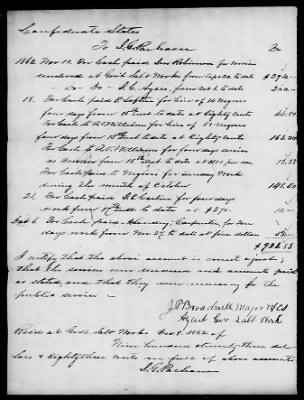 Confederate States
To J. C. Parham Dr
1862 Nov 10. For Cash paid Robinson for service
rendered at Govt Salt Works from Sept 20 to date $274
Do Do J. C. Ayres, from to date 200.00
18. For Cash paid for hire of 14 Negroes
four days from 15th Inst to date at Eighty cents 44.80
For Cash to A. D. Williams for hire of 51 negroes
four days from 15 Inst to date at Eighty cents 163.20
For Cash to A. D. Williams for four days service
as overseer from 15th to date at per mo 13.33
For Cash paid to Negroes for Sunday Work
during the month of October 148.50
21. For Cash paid for four days
work from Inst to date at
Dec 6. For Cash paid Henry, Carpenter, for
days work from Nov 27 to date at five dollars
$923.83
I certify that the above account is correct & just;
that the services were rendered and amounts paid
as stated and that they were necessary for the
public service
J. P. Broadwell Major & CS
Agent Gov Salt Work
Recd at Govt Salt Works Dec 8 1862 of
Nine hundred & twenty three dol
lars & Eighty three cents in full of above account
J. C. Parham